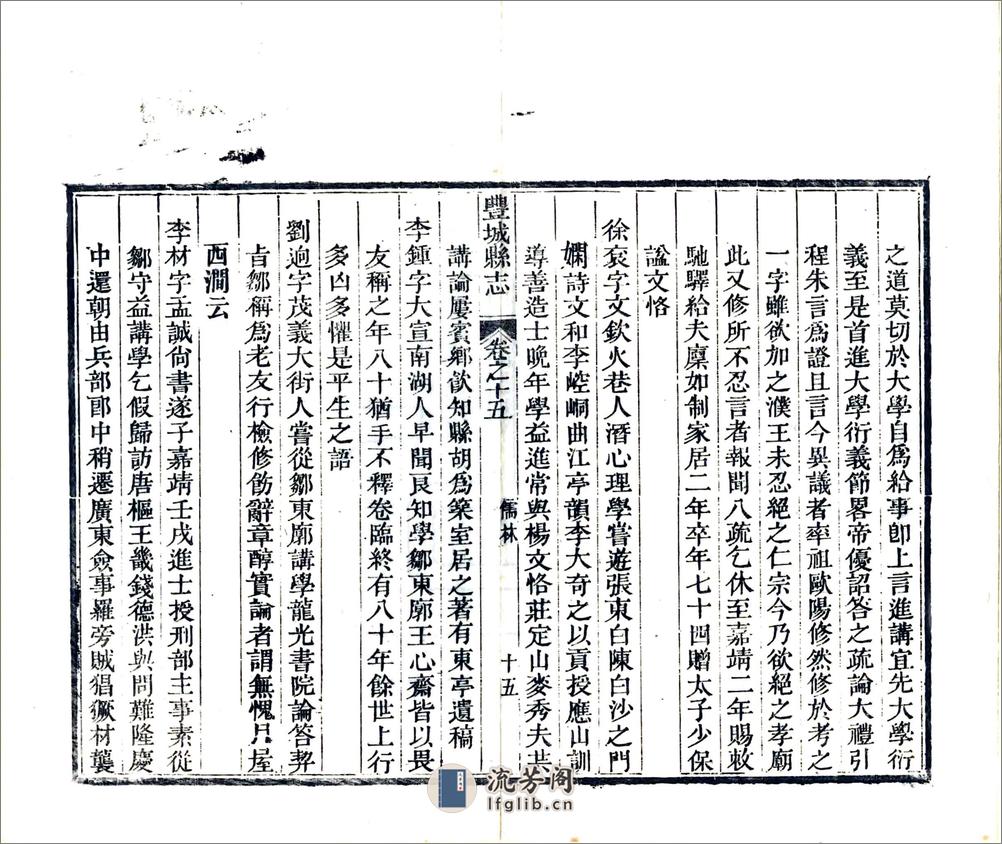 之道莫切於大學自爲給事卽上言進講宜先大學衍
義至是首進大學衍義節畧帝優詔答之疏論大禮引
程朱言爲證且言今異議者率祖歐陽修然修於考之
一字雖欲加之濮王未忍絕之仁宗今乃欲絕之孝廟
此又修所不忍言者報聞八疏乞休至嘉靖二年賜敕
馳驛給夫廩如制家居二年卒年七十四贈太子少保
諡文恪
徐裒字文欽火巷人潛心理學嘗遊張東白陳白沙之門
嫻詩文和李崆峒曲江亭韻李大奇之以貢授應山訓
導善造士晚年學益進常與楊文恪莊定山麥秀夫共
豐城縣志
卷之十五
儒林
十五
講論屢賓鄉飲知縣胡爲築室居之著有東亭遺稿
李鍾字大宣南湖人早聞良知學鄒東廓王心齋皆以畏
友稱之年八十猶手不釋卷臨終有八十年餘世上行
多凶多懼是平生之語
劉逈字茂義大街人嘗從鄒東廓講學龍光書院論答契
旨鄒稱爲老友行檢修飭辭章醇實論者謂無愧只屋
西澗云
李材字孟誠尚書遂子嘉靖壬戌進士授刑部主事素從
鄒守益講學乞假歸訪唐樞王畿錢德洪與問難隆慶
中還朝由兵部郎中稍遷廣東僉事羅旁賊猖獗材襲
流芳阁
lfglib.cn